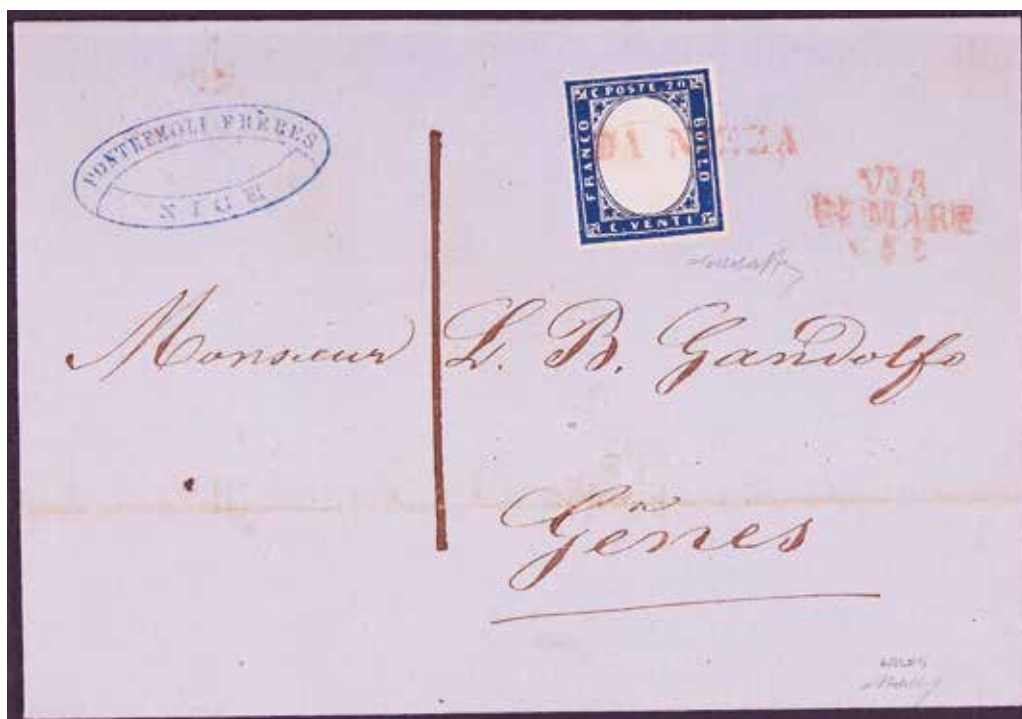 PONTREMOLI FRÈRES
NICE
C POSTE 20
FRANCO
BOLLO
C. VENTI
DA NIZZA
VIA
DI MARE
Monsieur L. B. Gandolfo
Gênes